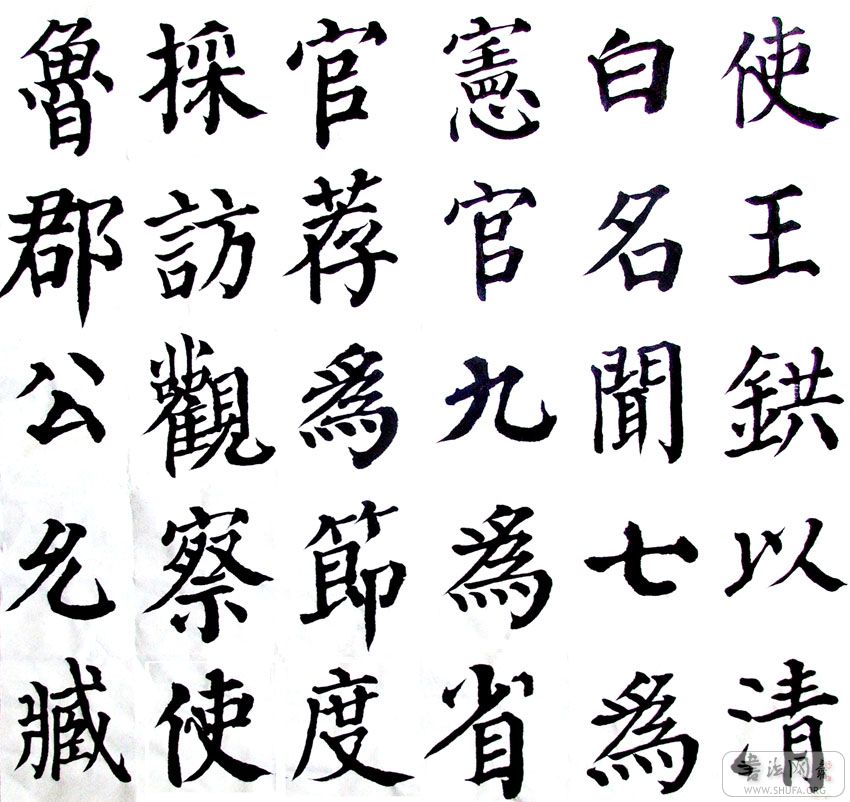 使王鉷以清
白名聞七爲
憲官九爲省
官荐爲節度
採訪觀察使
魯郡公允臧
書法网
WWW.SHUFA.ORG